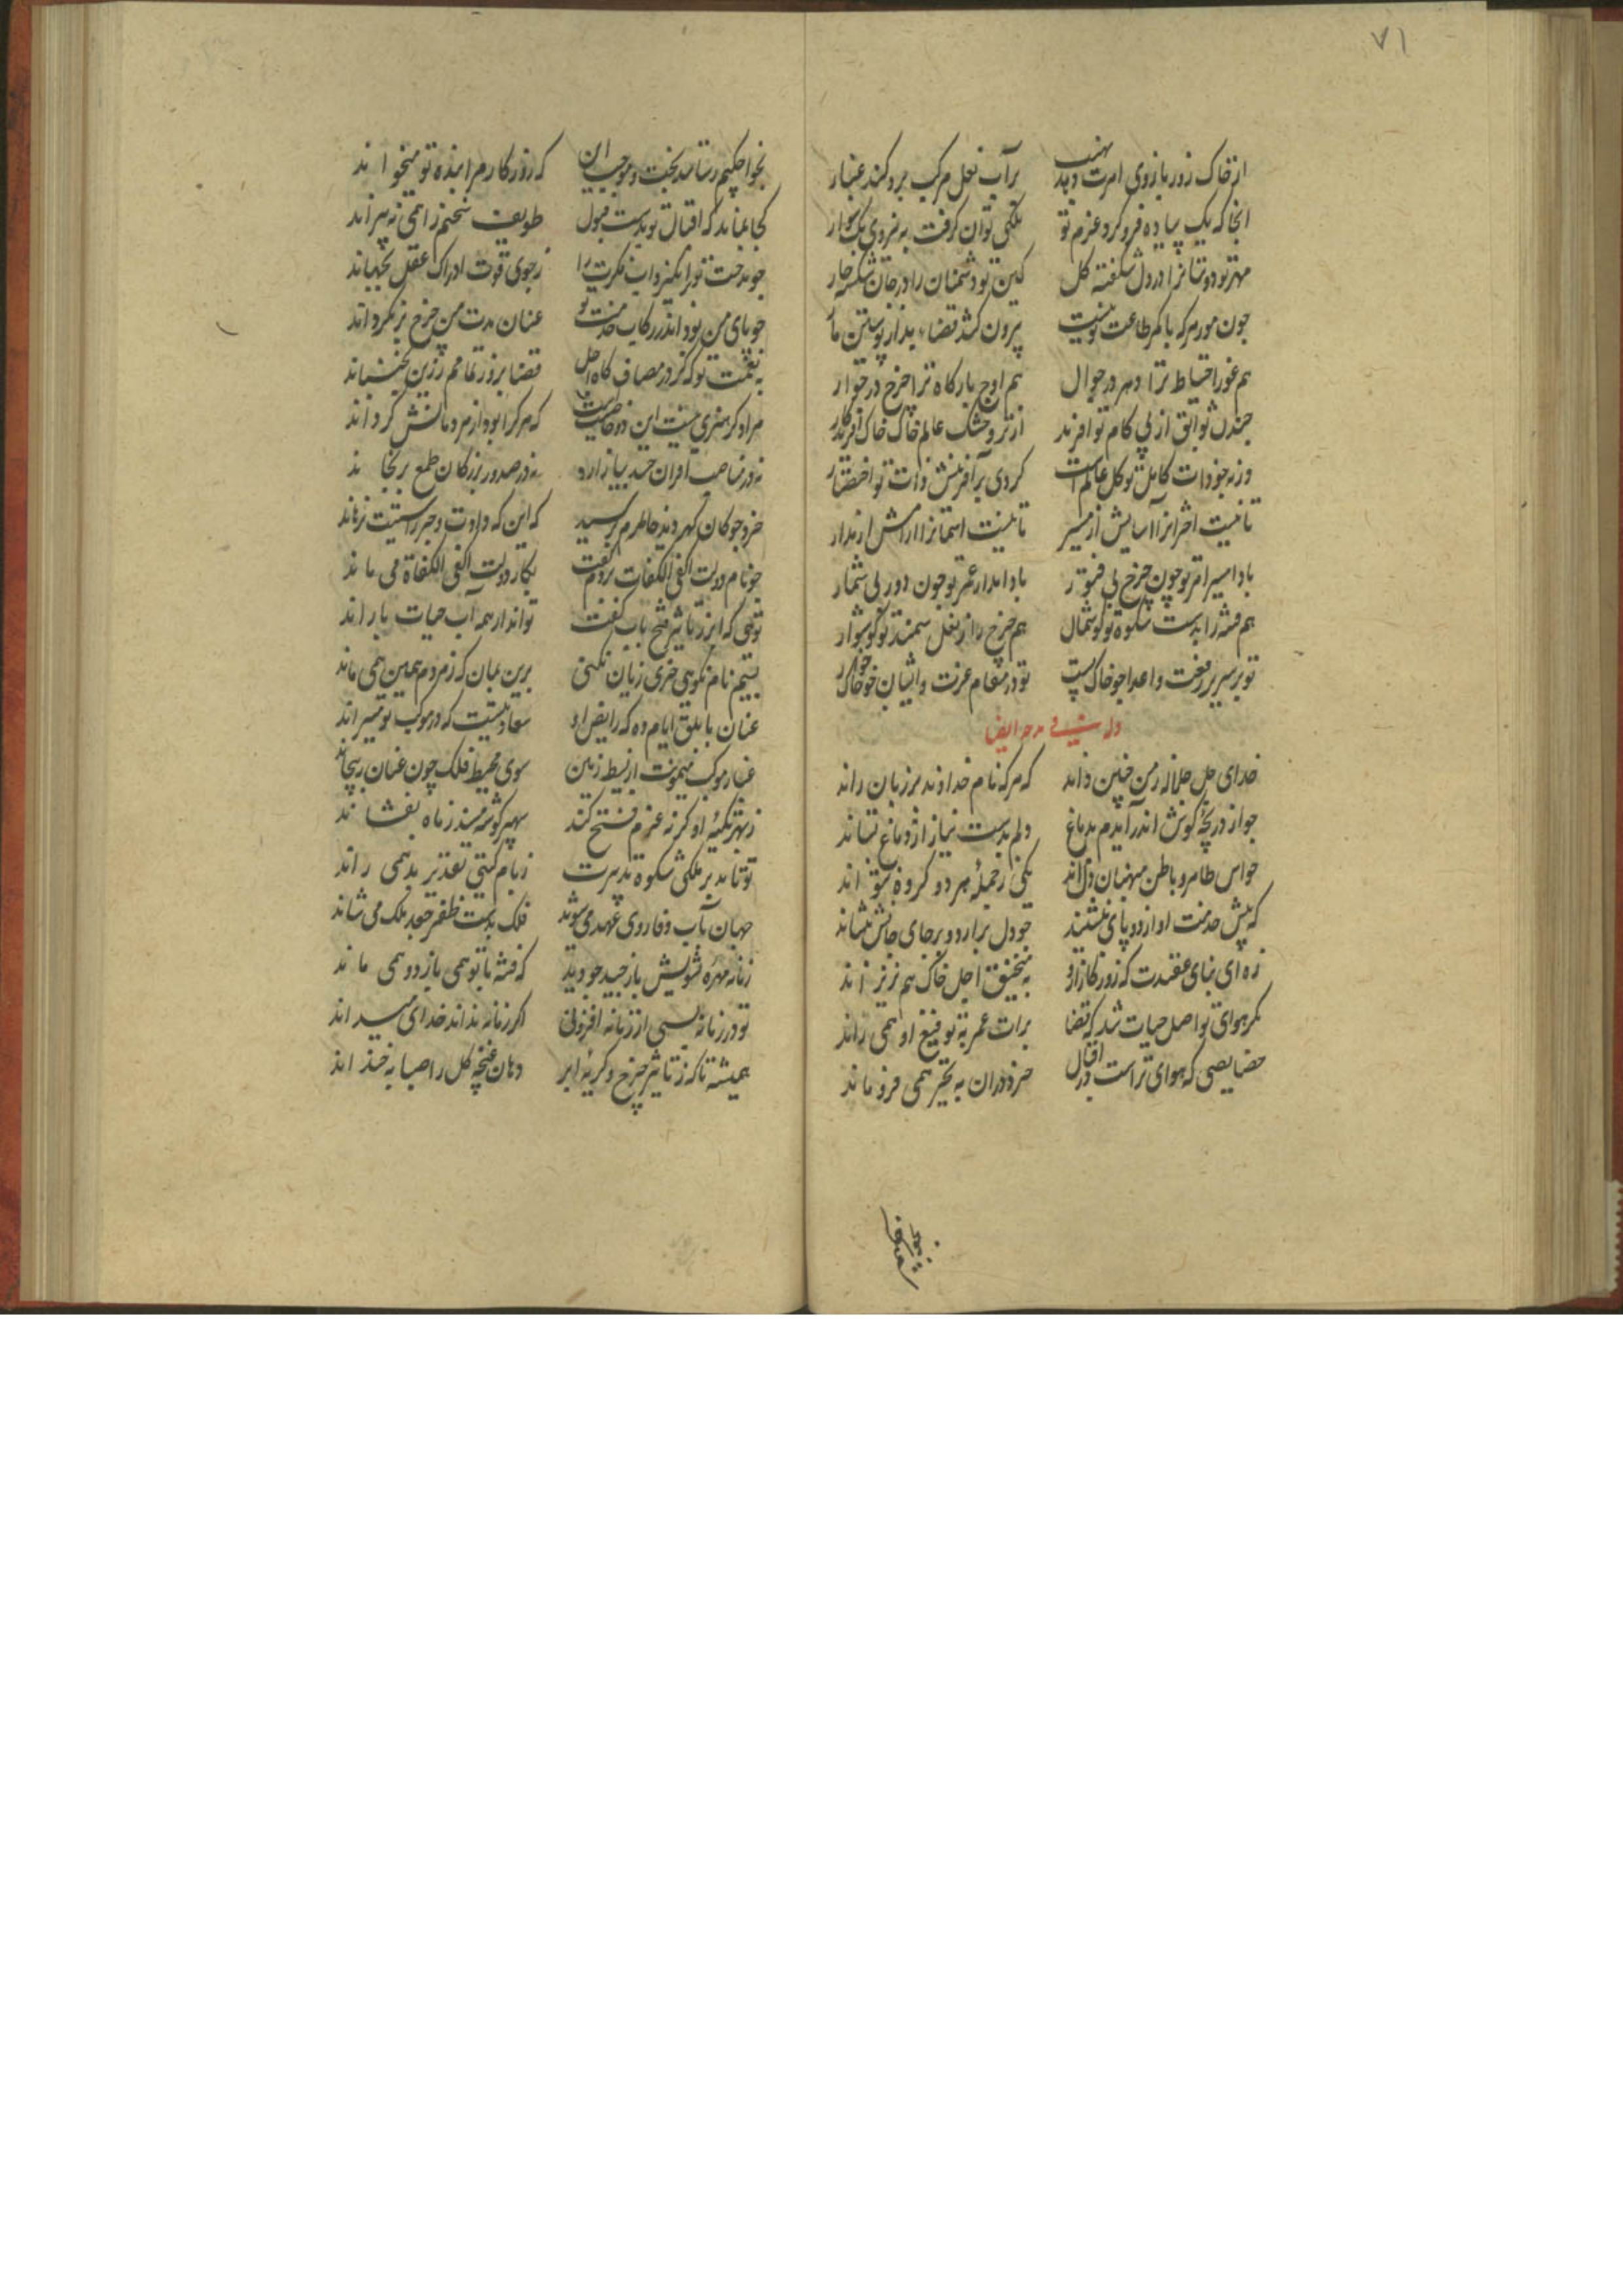 ۷۱
از خاک زور بازوی امرت بر آب نعل مرکب برو کند غبار
انجا که یک پیاده فرو کرد عزم تو ملکی توان کرفت به نیروی یک سوار
مهر تو دوستانرا در دل شکفته کل کین تو دشمنان را در جان شکسته خار
چون مور هرکه با کمر طاعت تو نیست بیرون کشد قضا ز پوستین مار
هم غور احتیاط ترا دهر در جوال هم اوج بارکاه ترا چرخ در جوار
چندن توابق از پی کام تو افرید از تر و خشک عالم خاک افریدکار
ورنه جو ذات کامل تو کل عالمست کردی بر آفرینش ذات تو اختصار
تا نیست اخترانرا آسایش از مسیر تا نیست اسمانرا ارامش از مدار
بادا مسیر امر تو چون چرخ بی فتور بادا مدار عمر تو چون دور بی شمار
هم فتنه را بدست شکوه تو کوشمال هم چرخ را ز نعل سمند تو کوشوار
تو بر سریر رفعت و اعدا چو خاک پست تو در مقام عزت و ایشان چو خاک خوار
خدای جل جلاله ز من چنین داند که هرکه نام خداوند بر زبان راند
جو از دریچه کوش اندر آیدم بدماغ دلم بدست نیاز از دماغ بستاند
حواس ظاهر و باطن که منهیان دل اند یکی ز جمله هر دو کروه نتواند
که پیش خدمت او از دو پای ننشیند جو دل برارد و بر جای جانش بنشاند
زه ای بنای عقیدت که روزکار ازو به منجنیق اجل خاک هم نریزاند
مکر هوای تو اصل حیات شد که قضا برات عمر به توقیع او همی راند
خصایصی که هوای تراست در اقبال خرد دران به تحیر همی فرو ماند
بخواجکیم رساند بخت و موجب این که روزکار مرا بنده تو میخواند
کجا بماند که اقبال تو بدست قبول طویله سخنم را همی نپراند
جو مدحت تو برانکیزد اب فکرت را ز جوی قوت ادراک عقل بجهاند
جو پای من بود اندر رکاب خدمت تو عنان مدت من چرخ برنکرداند
به نعمت تو که کر در مصاف کاه اجل قضا بروز تمامم ز زین بجنباند
مرا دکر هنری نیست این دو خاصیت است که هرکرا بود از مردمانش کرداند
نه در مناصب اقران حسد بیازارد نه در صدور بزرکان طمع برنجاند
جو نام دولت الغی الکفات بردم کفت بکار دولت الغی الکفاة می ماند
توئی که ابر ز تاثیر فتح باب کفت تواند ار همه آب حیات باراند
بستیم نام نکویی خری زیان نکنی برین بمان که ز مردم همین همی ماند
عنان بابلق ایام ده که رایض او سعادتیست که در موکب تو میراند
غبار موکب میمونت از بسیط زمین سوی محیط فلک چون عنان بپیچاند
ز بهر تکیه او کرنه عزم فسخ کند سپهر کوشه مسند ز ماه بفشاند
تو تا مدبر ملکی شکوه تدبیرت زمام کیتی تقدیر بد همی راند
جهان بآب وفا روی عهد می شوید فلک بدست ظفر جعد ملک می شاند
زمانه مهره تشویش باز چید چو دید که فتنه با تو همی بازد و همی ماند
تو در زمانه بسی از زمانه افزونی اکر زمانه نداند خدای میداند
همیشه تا که ز تاثیر چرخ و کریه ابر دهان غنچه کل را صبا بخنداند